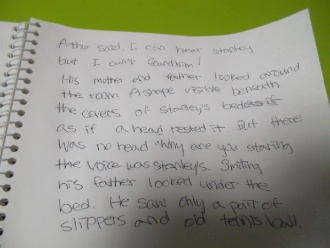 Arthur said. I can hear stanley
but I can't found him!
His mother and father looked around
the room A shape visible beneath
the covers of stanley's
as if a head rested it But there
was no head "Why are you staring
the voice was stanley's. Smiling
his father looked under the
bed. He saw only a pair of
slippers and old tennis ball.